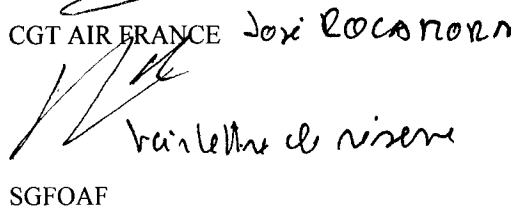 CGT AIR FRANCE José ROCAMORA
Voir lettre de réserve
SGFOAF